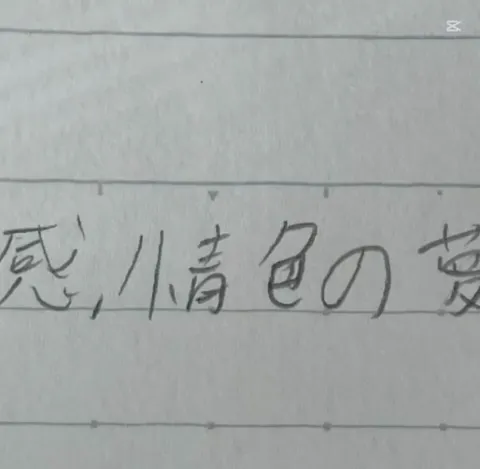 感,情色の夢